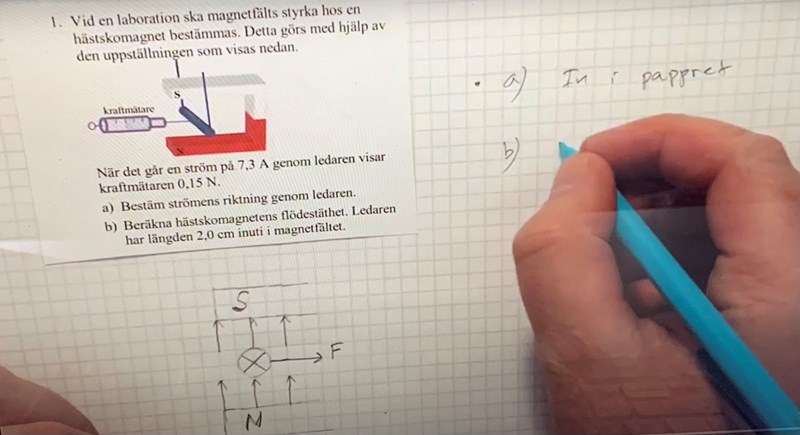 1. Vid en laboration ska magnetfälts styrka hos en
hästskomagnet bestämmas. Detta görs med hjälp av
den uppställningen som visas nedan.
S
kraftmätare
N
När det går en ström på 7,3 A genom ledaren visar
kraftmätaren 0,15 N.
a) Bestäm strömens riktning genom ledaren.
b) Beräkna hästskomagnetens flödestäthet. Ledaren
har längden 2,0 cm inuti i magnetfältet.
S
F
N
• a) In i pappret
b)